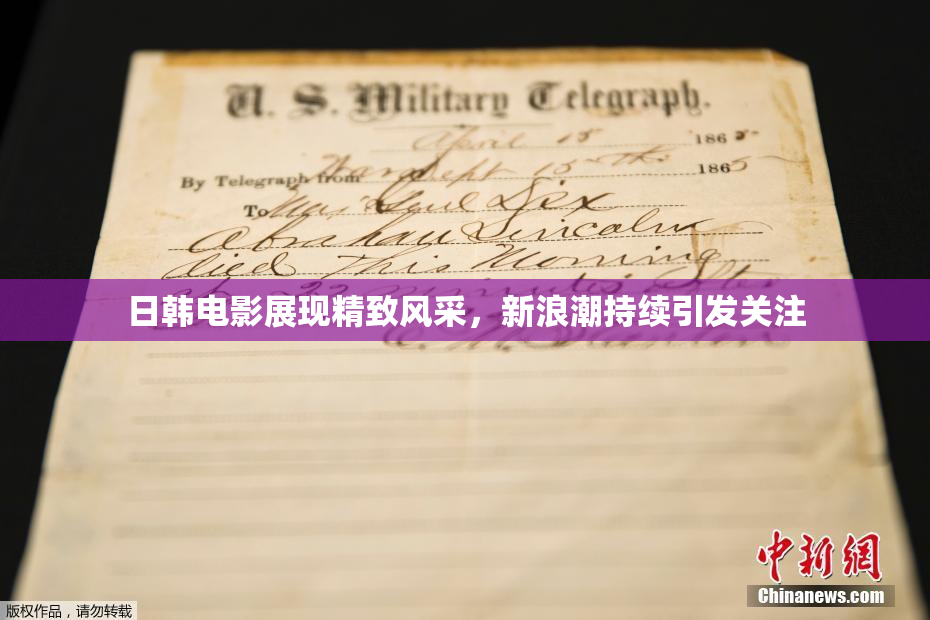 U. S. Military Telegraph.
April 15 1865
By Telegraph from War Dept 15th 1865
To Maj Genl Dix
Abraham Lincoln
died This Morning
at 22 minutes after
日韩电影展现精致风采，新浪潮持续引发关注
E. M. Stanton
中新网
Chinanews.com
版权作品，请勿转载